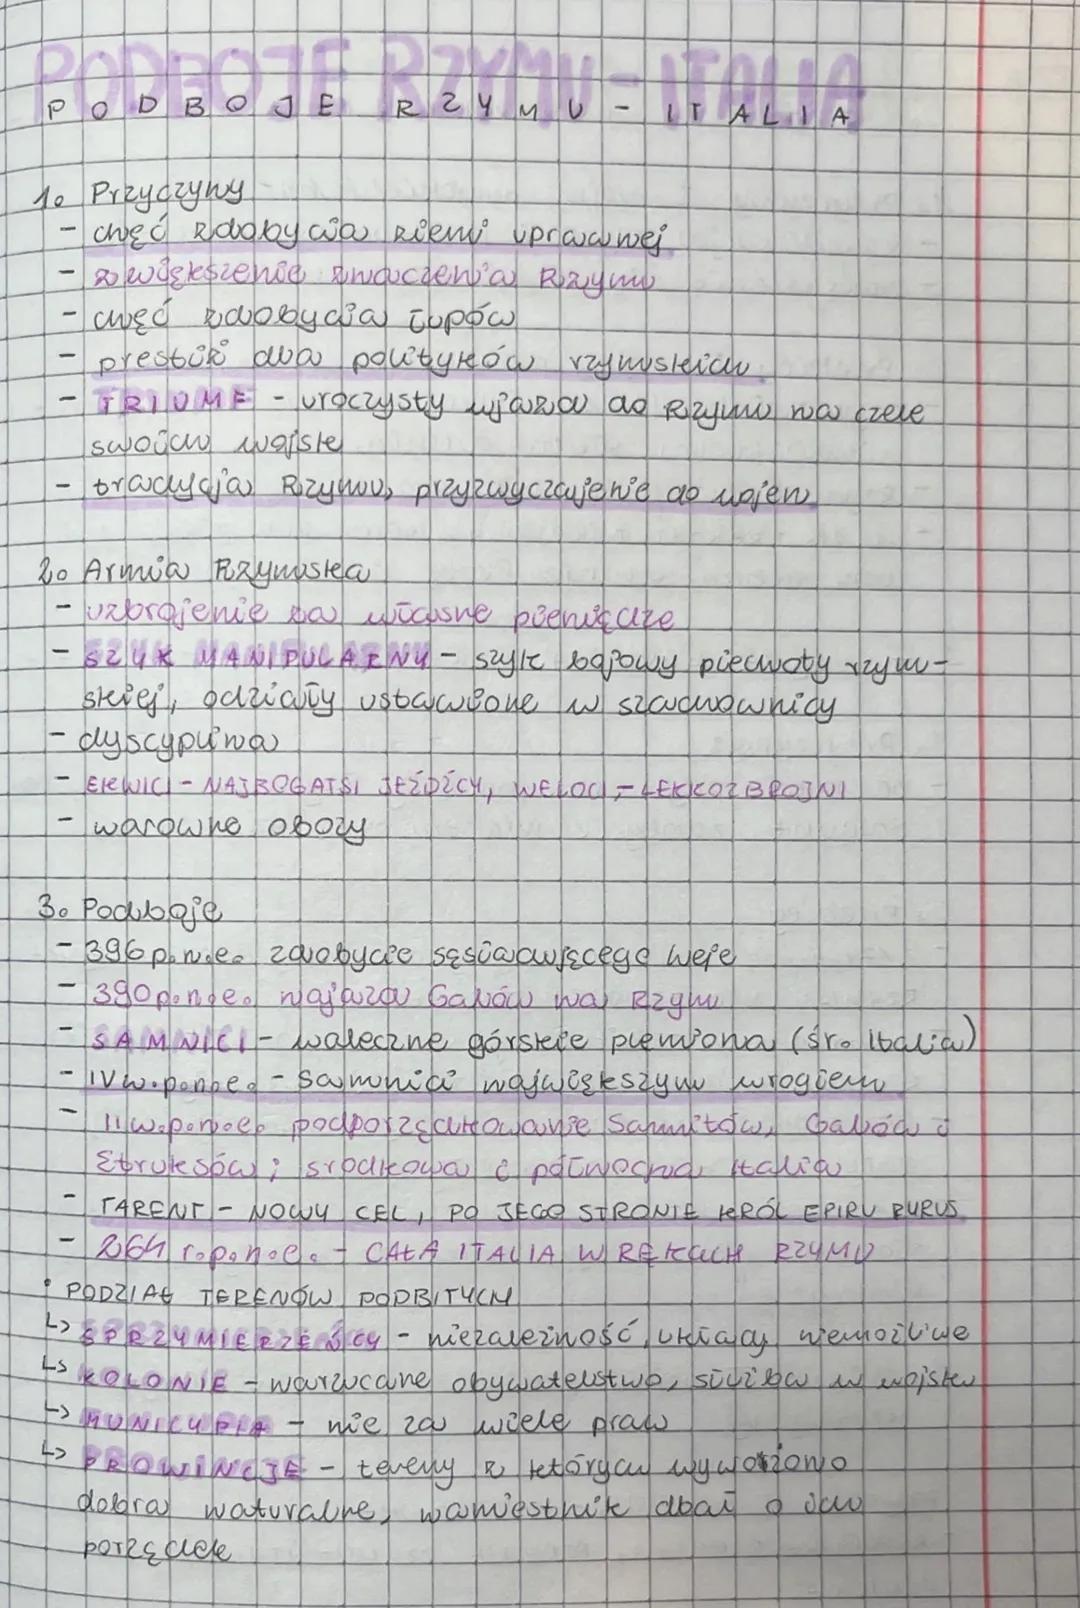 PODBOJE RZYMU - ITALIA
PODBOJE RZYMU - ITALIA
1. Przyczyny
- chęć zdobycia ziemi uprawnej
- zwiększenie znaczenia Rzymu
- chęć zdobycia łupów
- prestiż dla polityków rzymskich
- TRIUMF - uroczysty wjazd do Rzymu na czele
swoich wojsk
- tradycja Rzymu, przyzwyczajenie do wojen
2. Armia Rzymska
- uzbrojenie za własne pieniądze
- SZYK MANIPULARNY - szyk bojowy piechoty rzym-
skiej, odziały ustawione w szachownicy
- dyscyplina
- EKWICI - NAJBOGATSI JEŹDZCY, WELOCI - LEKKOZBROJNI
- warowne obozy
3. Podboje
- 396 p.n.e. zdobycie sąsiadującego Weje
- 390 p.n.e. najazd Galów na Rzym
- SAMNICI - waleczne górskie plemiona (śr. Italia)
- IV w. p.n.e. - Samnici największym wrogiem
- II w. p.n.e. podporządkowanie Samnitów, Galów i
Etrusków; środkowa i północna Italia
- TARENT - NOWY CEL, PO JEGO STRONIE KRÓL EPIRU PYRUS
- 264 r. p.n.e. - CAŁA ITALIA W RĘKACH RZYMU
• PODZIAŁ TERENÓW PODBITYCH
↳ SPRZYMIERZEŃCY - niezależność, układy niemożliwe
↳ KOLONIE - narzucane obywatelstwo, służba w wojsku
↳ MUNICYPIA - nie za wiele praw
↳ PROWINCJE - tereny z których wywożono
dobra naturalne, namiestnik dbał o ich
porządek